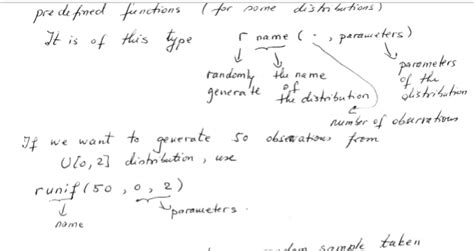 predefined functions (for some distributions)
It is of this type r name ( · , parameters)
randomly generate
the name of the distribution
parameters of the distribution
number of observations
If we want to generate 50 observations from
U[0,2] distribution, use
runif(50, 0, 2)
name
parameters.
random sample taken